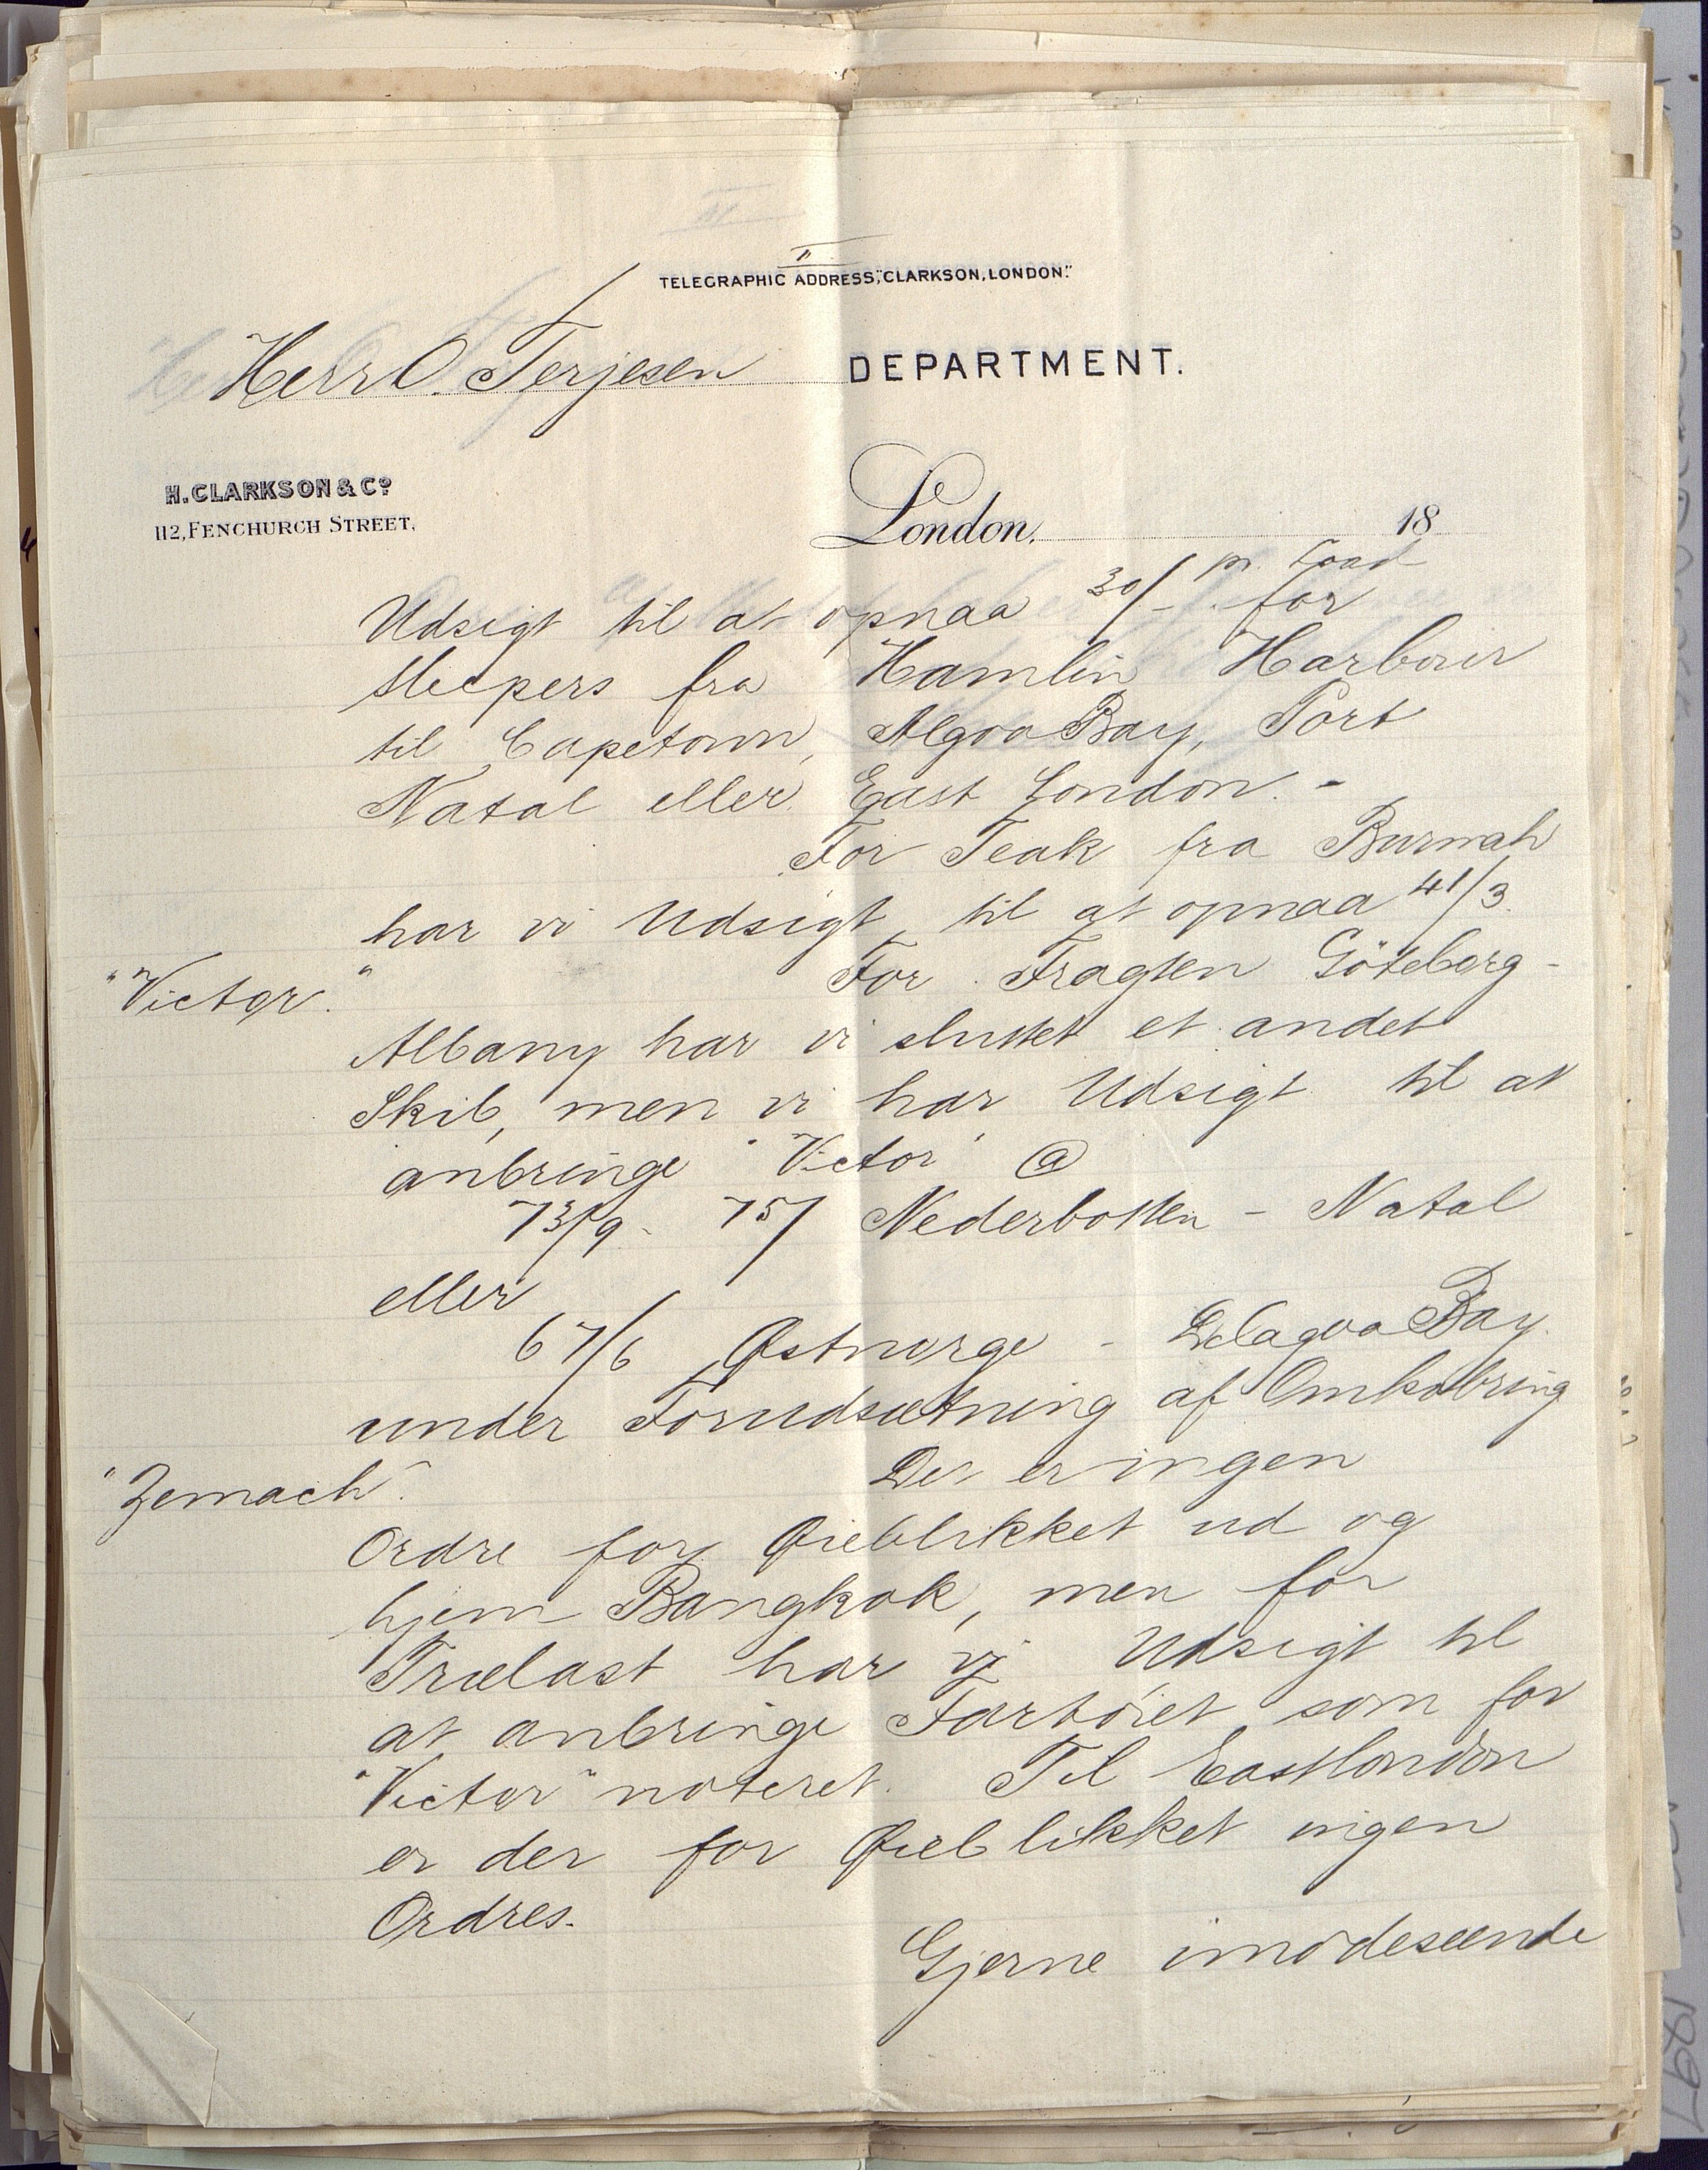 II
TELEGRAPHIC ADDRESS, "CLARKSON, LONDON."
Herr O. Terjesen DEPARTMENT.
H. CLARKSON & Co
112, FENCHURCH STREET,
London, 18
Udsigt til at opnaa 30/- pr. Load for
Sleepers fra Hamlin Harbour
til Capetown, Algoa Bay, Port
Natal eller East London. -
For Teak fra Burmah
har vi Udsigt til at opnaa 41/3.
"Victor." For Fragten Göteborg -
Albany har vi sluttet et andet
Skib, men vi har Udsigt til at
anbringe "Victor" @
73/9 - 75/ Nederbotten - Natal
eller
67/6 Østnorge - Delagoa Bay
under Forudsætning af Omkobring
"Zemach". Der er ingen
Ordre for Øieblikket ud og
hjem Bangkok, men for
Trælast har vi Udsigt til
at anbringe Fartøiet som for
"Victor" noteret. Til Eastlondon
er der for Øieblikket ingen
Ordres.
Gjerne imødeseende